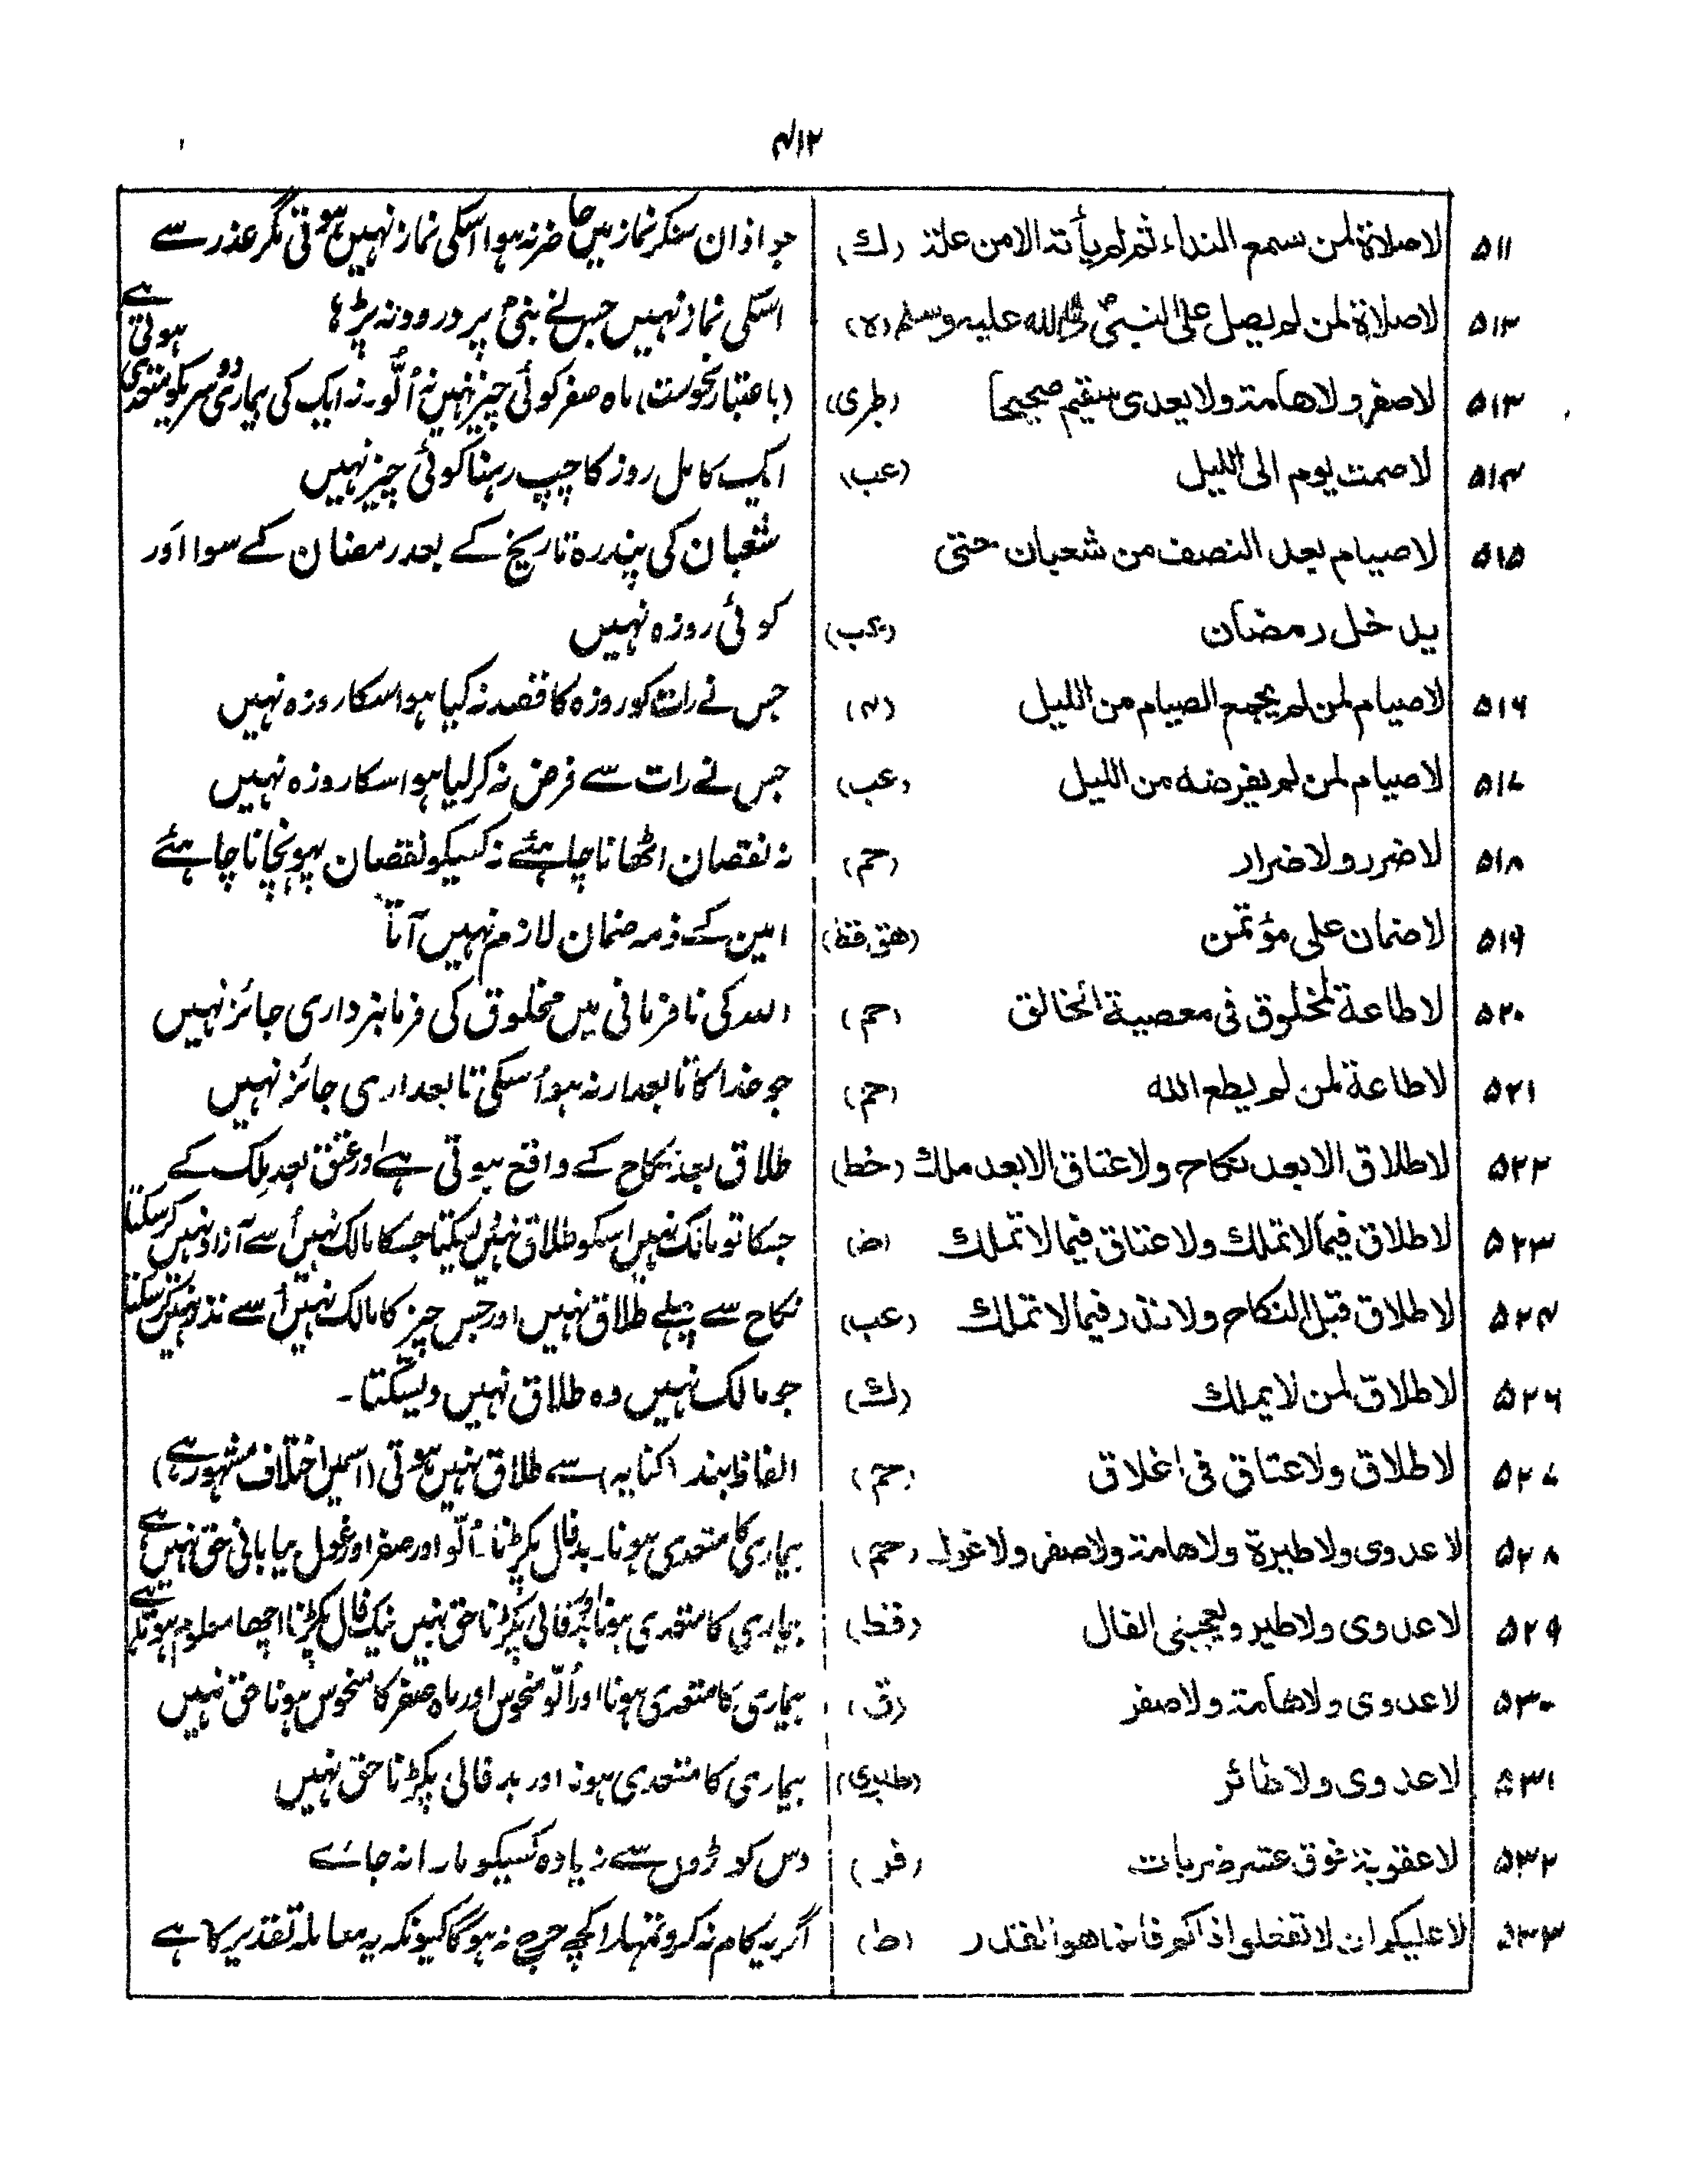 ۴۱۲
۵۱۱ لاصلاة لمن سمع النداء ثم لم يأته الا من علة (ك) جو اذان سنکر نماز میں حاضر نہ ہوا اسکی نماز نہیں ہوتی مگر عذر سے
۵۱۲ لاصلاة لمن لم يصل على النبي صلى الله عليه وسلم (ه) اسکی نماز نہیں جس نے نبی پر درود نہ پڑھا ہوتی ہے
۵۱۳ لاصفر ولا هامة ولا يعدى سقيم صحيحا (طبری) (باعتبار نحوست) ماہ صفر کوئی چیز نہیں نہ اُلّو۔ نہ ایک کی بیماری دوسریکو متعدی
۵۱۴ لاصمت يوم الى الليل (عب) ایک کامل روز کا چپ رہنا کوئی چیز نہیں
۵۱۵ لاصيام بعد النصف من شعبان حتى شعبان کی پندرہ تاریخ کے بعد رمضان کے سوا اَور
يدخل رمضان (عب) کوئی روزہ نہیں
۵۱۶ لاصيام لمن لم يجمع الصيام من الليل (۴) جس نے رات کو روزہ کا قصد نہ کیا ہو اسکا روزہ نہیں
۵۱۷ لاصيام لمن لم يفرضه من الليل (عب) جس نے رات سے فرض نہ کرلیا ہو اسکا روزہ نہیں
۵۱۸ لاضرر ولا ضرار (حم) نہ نقصان اٹھانا چاہئے نہ کسیکو نقصان پہونچانا چاہئے
۵۱۹ لاضمان على مؤتمن (هق قط) امین کے ذمہ ضمان لازم نہیں آتا
۵۲۰ لاطاعة لمخلوق فى معصية الخالق (حم) اللہ کی نافرمانی میں مخلوق کی فرمانبرداری جائز نہیں
۵۲۱ لاطاعة لمن لم يطع الله (حم) جو خدا کا تابعدار نہ ہو اُسکی تابعداری جائز نہیں
۵۲۲ لاطلاق الا بعد نكاح ولا عتاق الا بعد ملك (خط) طلاق بعد نکاح کے واقع ہوتی ہے اور عتق بعد مِلک کے
۵۲۳ لاطلاق فيما لا تملك ولا عتاق فيما لا تملك (ض) جسکا تو مالک نہیں اسکو طلاق نہیں دیسکتا جسکا مالک نہیں اُسے آزاد نہیں کرسکتا
۵۲۴ لاطلاق قبل النكاح ولا نذر فيما لا تملك (عب) نکاح سے پہلے طلاق نہیں اور جس چیز کا مالک نہیں اُسے نذر نہیں کرسکتا
۵۲۶ لاطلاق لمن لا يملك (ك) جو مالک نہیں وہ طلاق نہیں دیسکتا۔
۵۲۷ لاطلاق ولا عتاق فى اغلاق (حم) الفاظ بند (کنایہ) سے طلاق نہیں ہوتی (اسمیں اختلاف مشہور ہے)
۵۲۸ لا عدوى ولا طيرة ولا هامة ولا صفر ولا غول (حم) بیماری کا متعدی ہونا۔ بد فال پکڑنا۔ اُلّو اور صفر اور غول بیابانی حق نہیں ہے
۵۲۹ لا عدوى ولا طير ويعجبنى الفال (قط) بیماری کا متعدی ہونا اور بدفالی پکڑنا حق نہیں نیک فال پکڑنا اچھا معلوم ہوتا ہے
۵۳۰ لا عدوى ولا هامة ولا صفر (ق) بیماری کا متعدی ہونا اور اُلّو منحوس اور ماہ صفر کا منحوس ہونا حق نہیں
۵۳۱ لا عدوى ولا طائر (طبری) بیماری کا متعدی ہونا اور بدفالی پکڑنا حق نہیں
۵۳۲ لا عقوبة فوق عشر ضربات (فر) دس کوڑوں سے زیادہ کسیکو مارا نہ جائے
۵۳۳ لا عليكم ان لا تفعلوا ذاكم فانما هو القدر (ط) اگر یہ کام نہ کرو تمہارا کچھ حرج نہ ہوگا کیونکہ یہ معاملہ تقدیر کا ہے